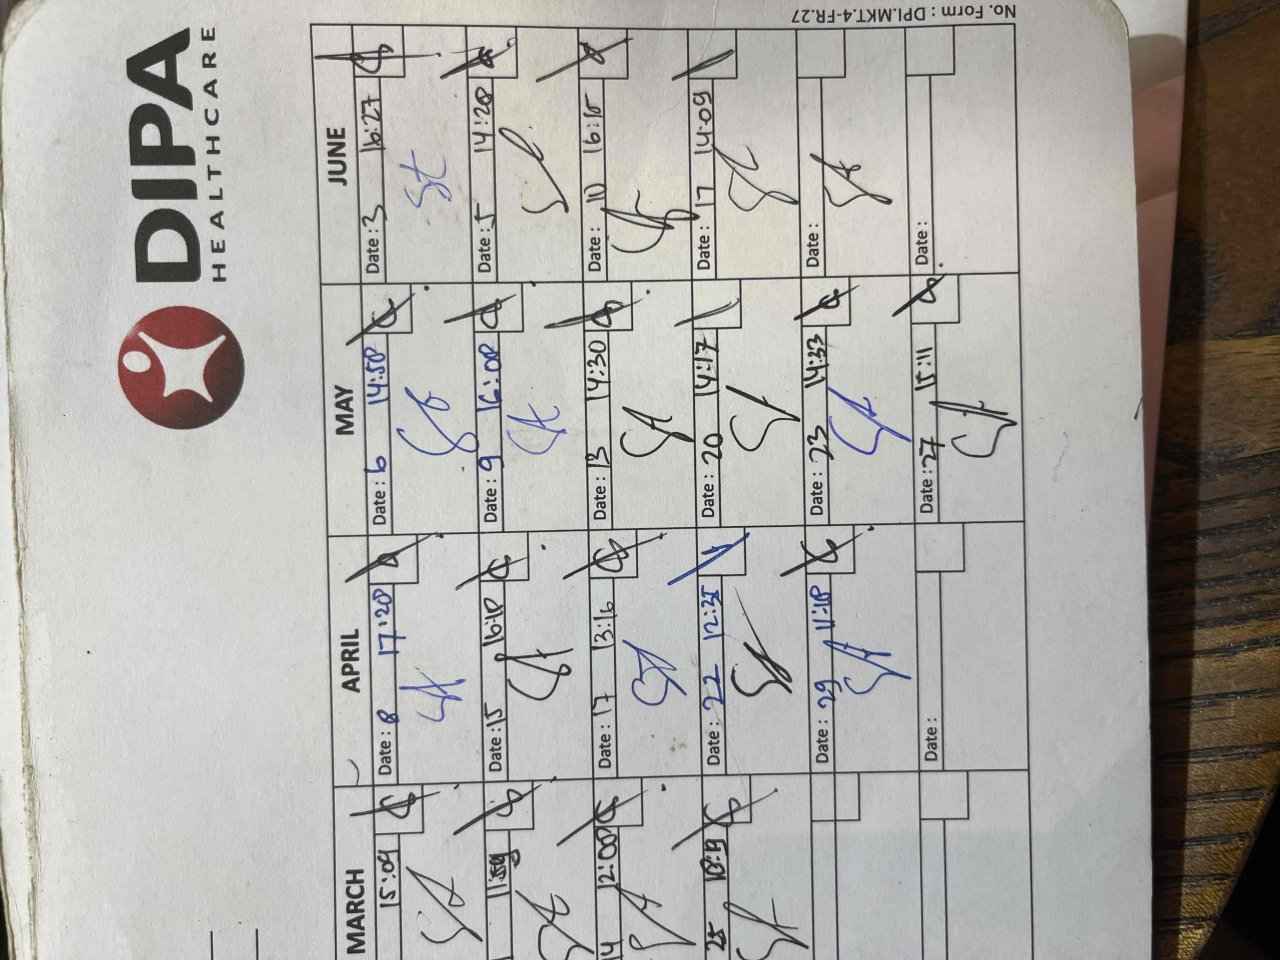 DIPA
HEALTHCARE
MARCH
15:09
11:59
14 12:00
25
APRIL
Date : 8 17:20
Date : 15 16:10
Date : 17 13:16
Date : 22 12:35
Date : 29 11:10
Date :
MAY
Date : 6 14:50
Date : 9 16:00
Date : 13 14:30
Date : 20 14:17
Date : 23 14:33
Date : 27 15:11
JUNE
Date : 3 16:27
Date : 5 14:20
Date : 10 16:15
Date : 17 14:09
Date :
Date :
No. Form : DPI.MKT.4-FR.27